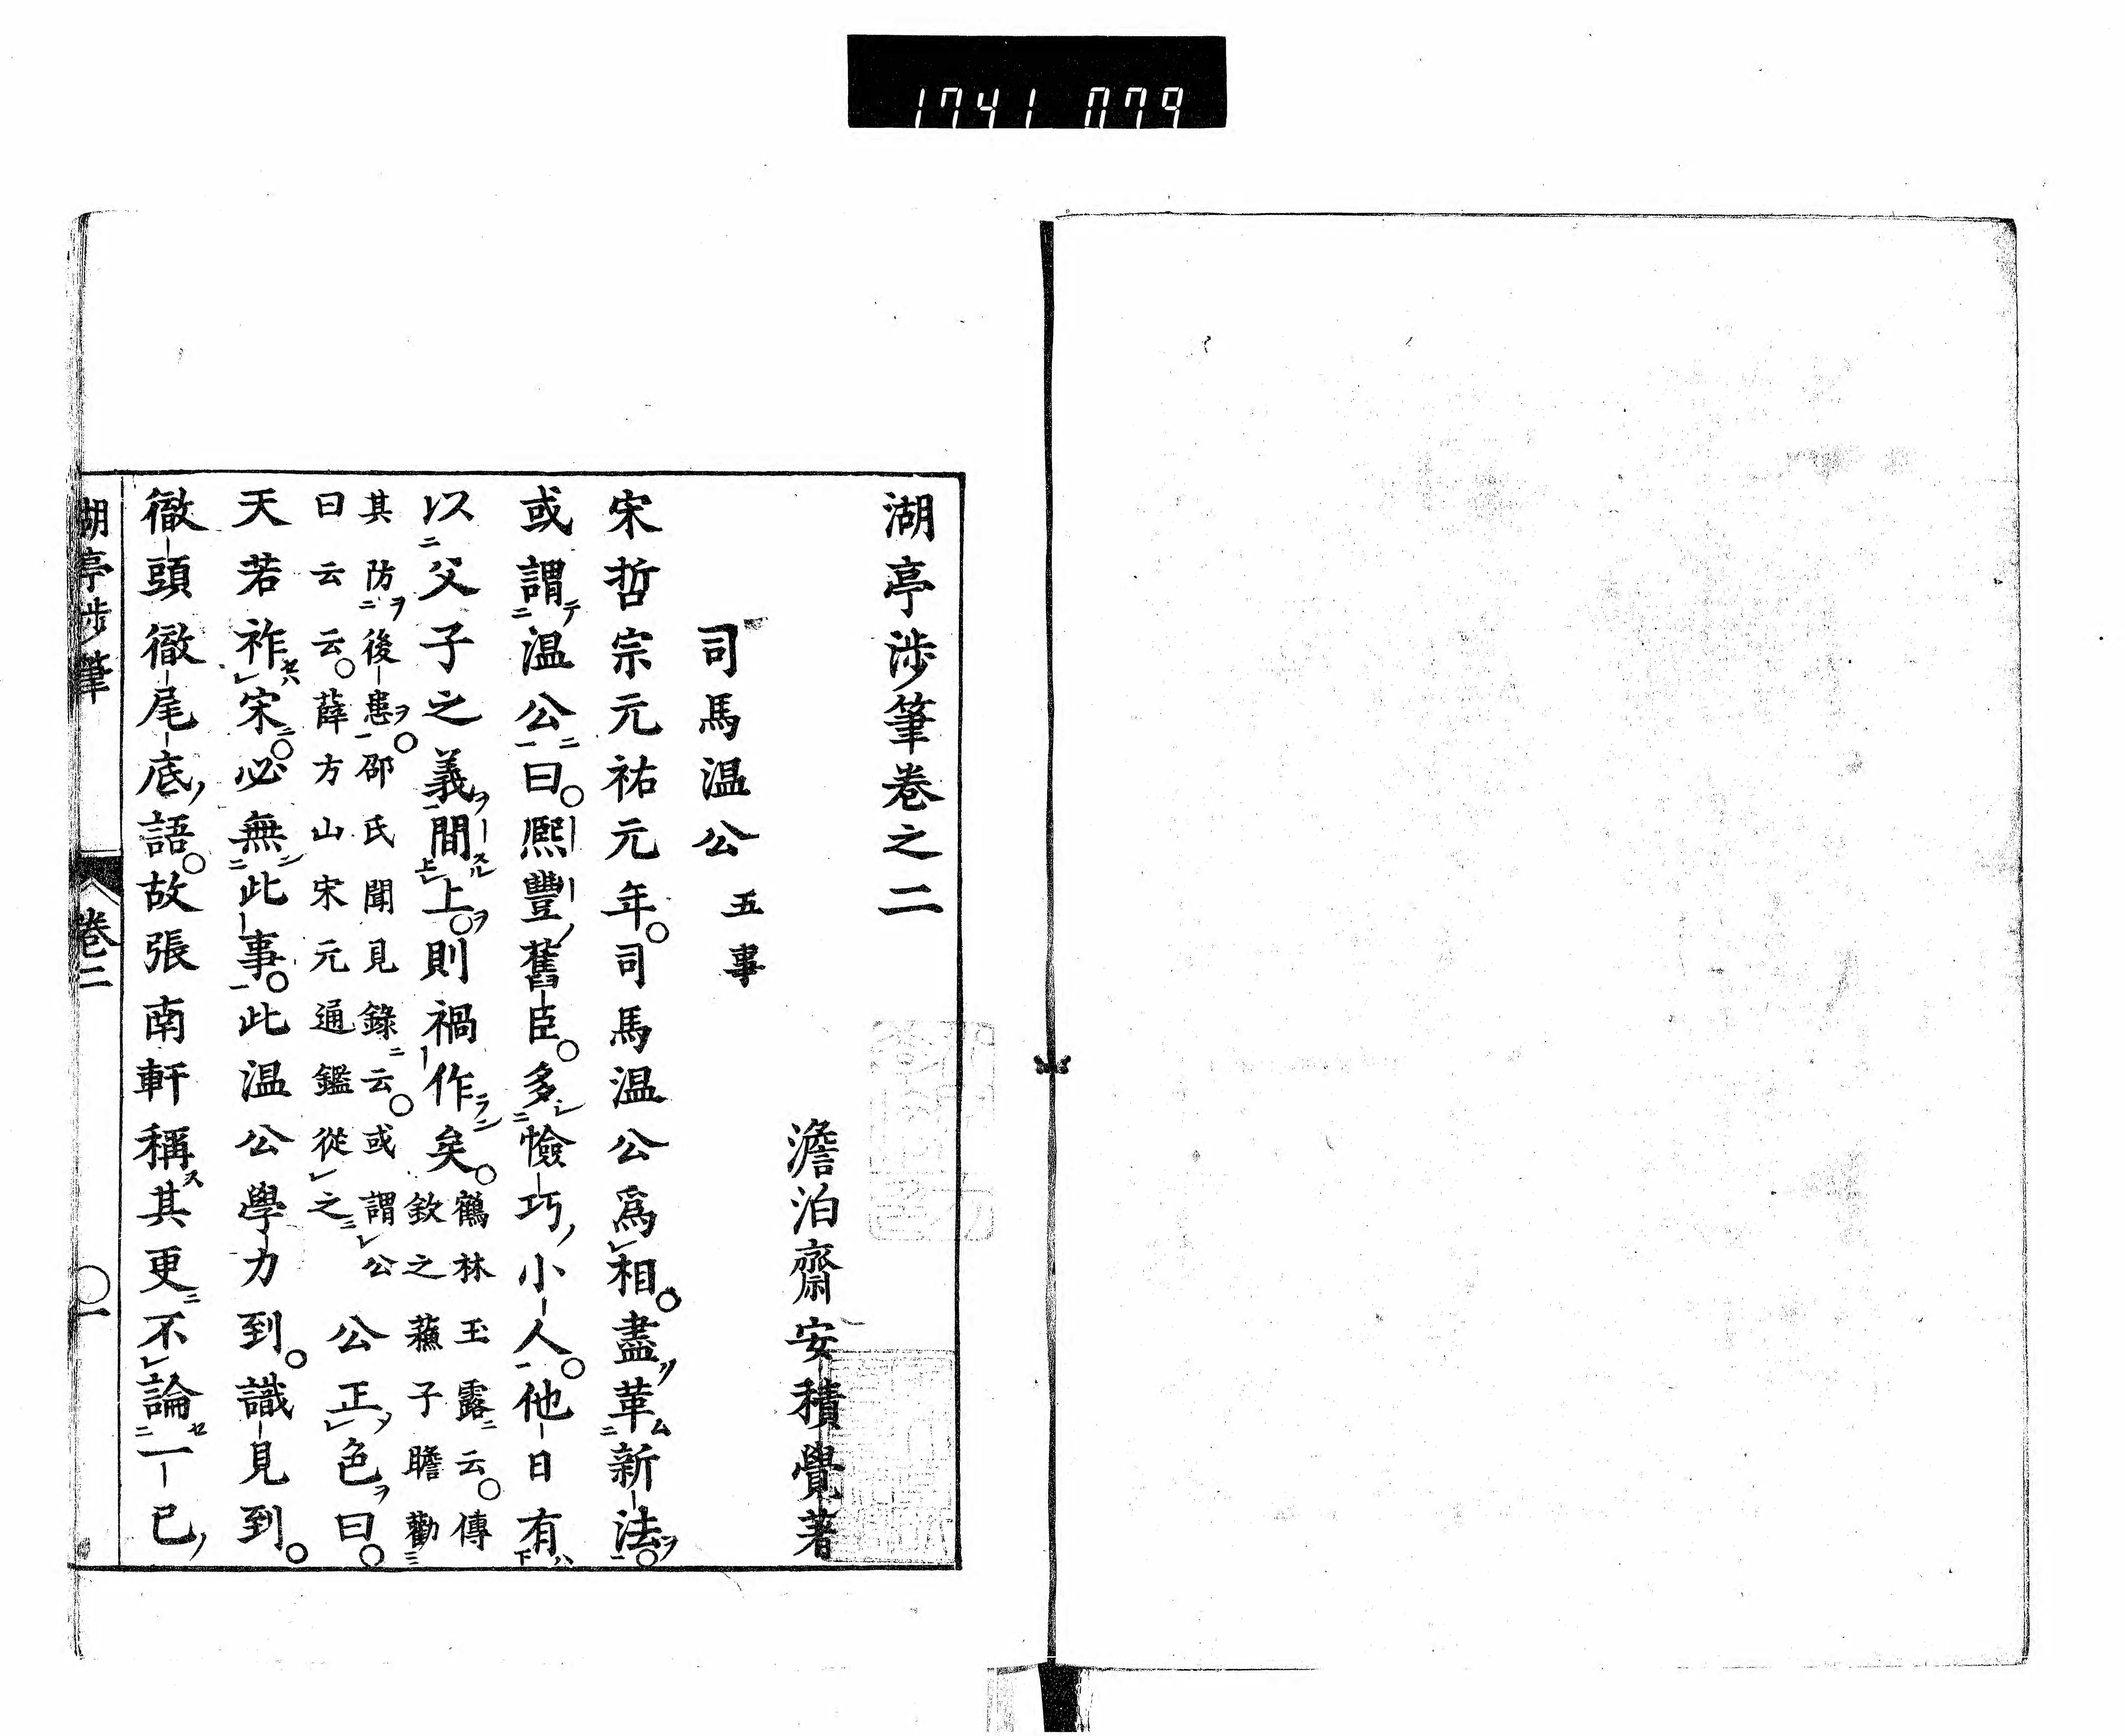 1741 079
湖亭渉筆卷之二
澹泊齋安積覺著
司馬温公 五事
宋哲宗元祐元年。司馬温公爲相。盡革新法。
或謂温公曰。熈豐舊臣。多憸巧小人。他日有
以父子之義間上。則禍作矣。鶴林玉露云。傳
欽之蘓子瞻勸
其防後患。邵氏聞見錄云。或謂公
曰云云。薛方山宋元通鑑從之
公正色曰。
天若祚宋。必無此事。此温公學力到。識見到。
徹頭徹尾底語。故張南軒稱其更不論一己
湖亭渉筆 卷二 一